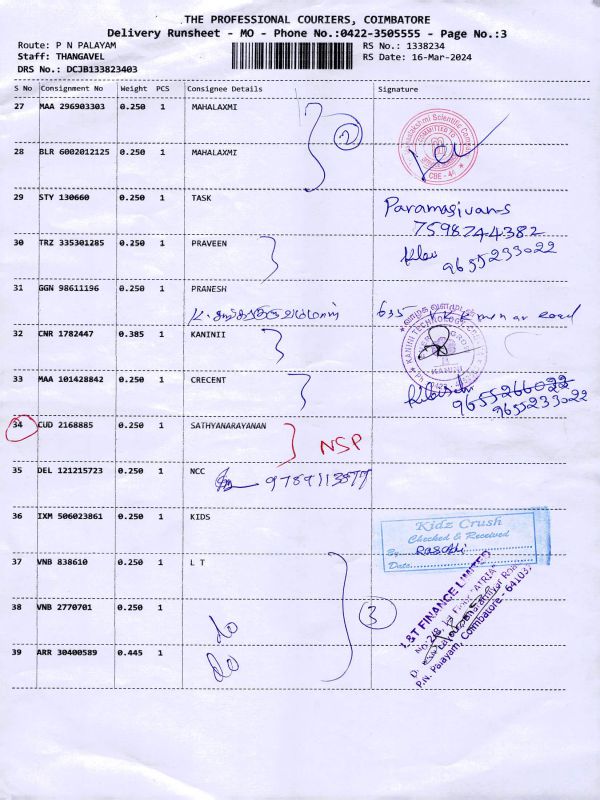 THE PROFESSIONAL COURIERS, COIMBATORE
Delivery Runsheet - MO - Phone No.:0422-3505555 - Page No.:3
Route: P N PALAYAM RS No.: 1338234
Staff: THANGAVEL RS Date: 16-Mar-2024
DRS No.: DCJB133823403
S No Consignment No Weight PCS Consignee Details Signature
27 MAA 296903303 0.250 1 MAHALAXMI
2
COMMITTED TO
CBE - 44
28 BLR 6002012125 0.250 1 MAHALAXMI
29 STY 130660 0.250 1 TASK Paramasivan-S
7598744382
30 TRZ 335301285 0.250 1 PRAVEEN
9655233022
31 GGN 98611196 0.250 1 PRANESH
635
32 CNR 1782447 0.385 1 KANINII
KANINI TECHNOLOGY
KANINI
33 MAA 101428842 0.250 1 CRECENT
9655266022
9655233022
34 CUD 2168885 0.250 1 SATHYANARAYANAN NSP
35 DEL 121215723 0.250 1 NCC 9789113877
36 IXM 506023861 0.250 1 KIDS
Kidz Crush
Checked & Received
By
Date
37 VNB 838610 0.250 1 L T
38 VNB 2770701 0.250 1 do
3
39 ARR 30400589 0.445 1 do
L&T FINANCE LIMITED
"ATRIA"
P.N. Palayam, Coimbatore - 641037